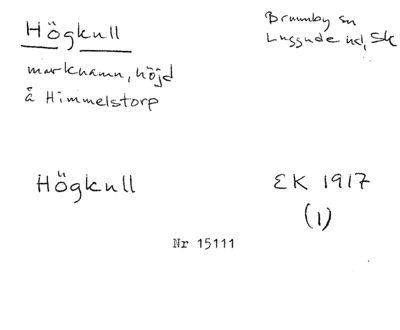 Högkull
Brunnby sn
Luggude hd, Sk
marknamn, höjd
å Himmelstorp
Högkull
EK 1917
(1)
Nr 15111